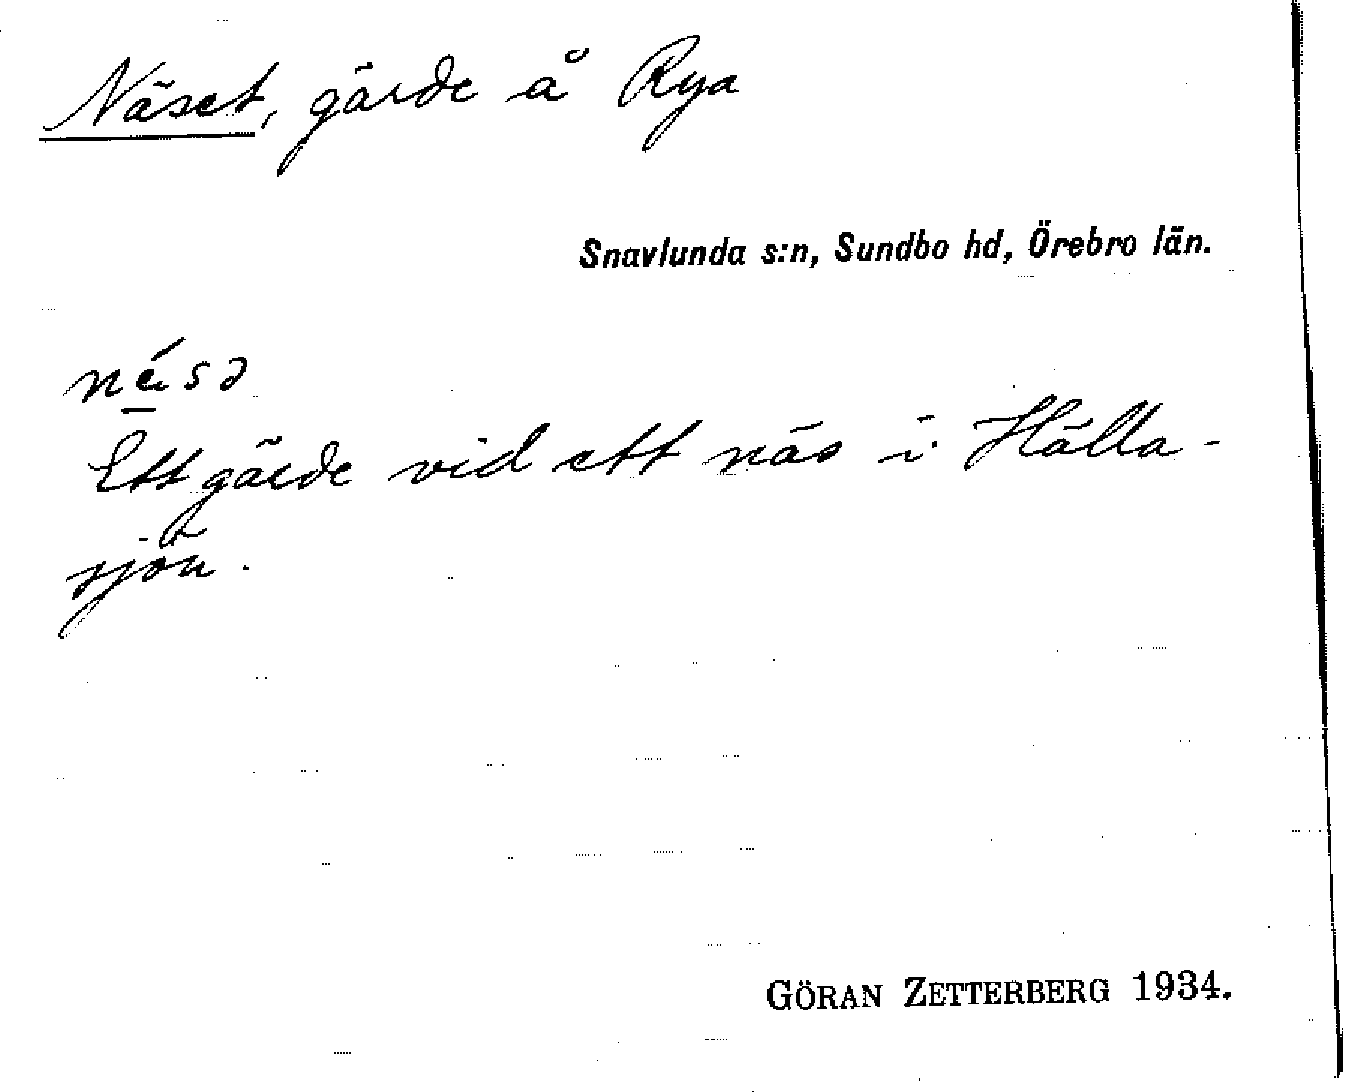 Näset, gärde å Rya
Snavlunda s:n, Sundbo hd, Örebro län.
Ett gärde vid ett näs i Hälla-
sjön.
GÖRAN ZETTERBERG 1934.